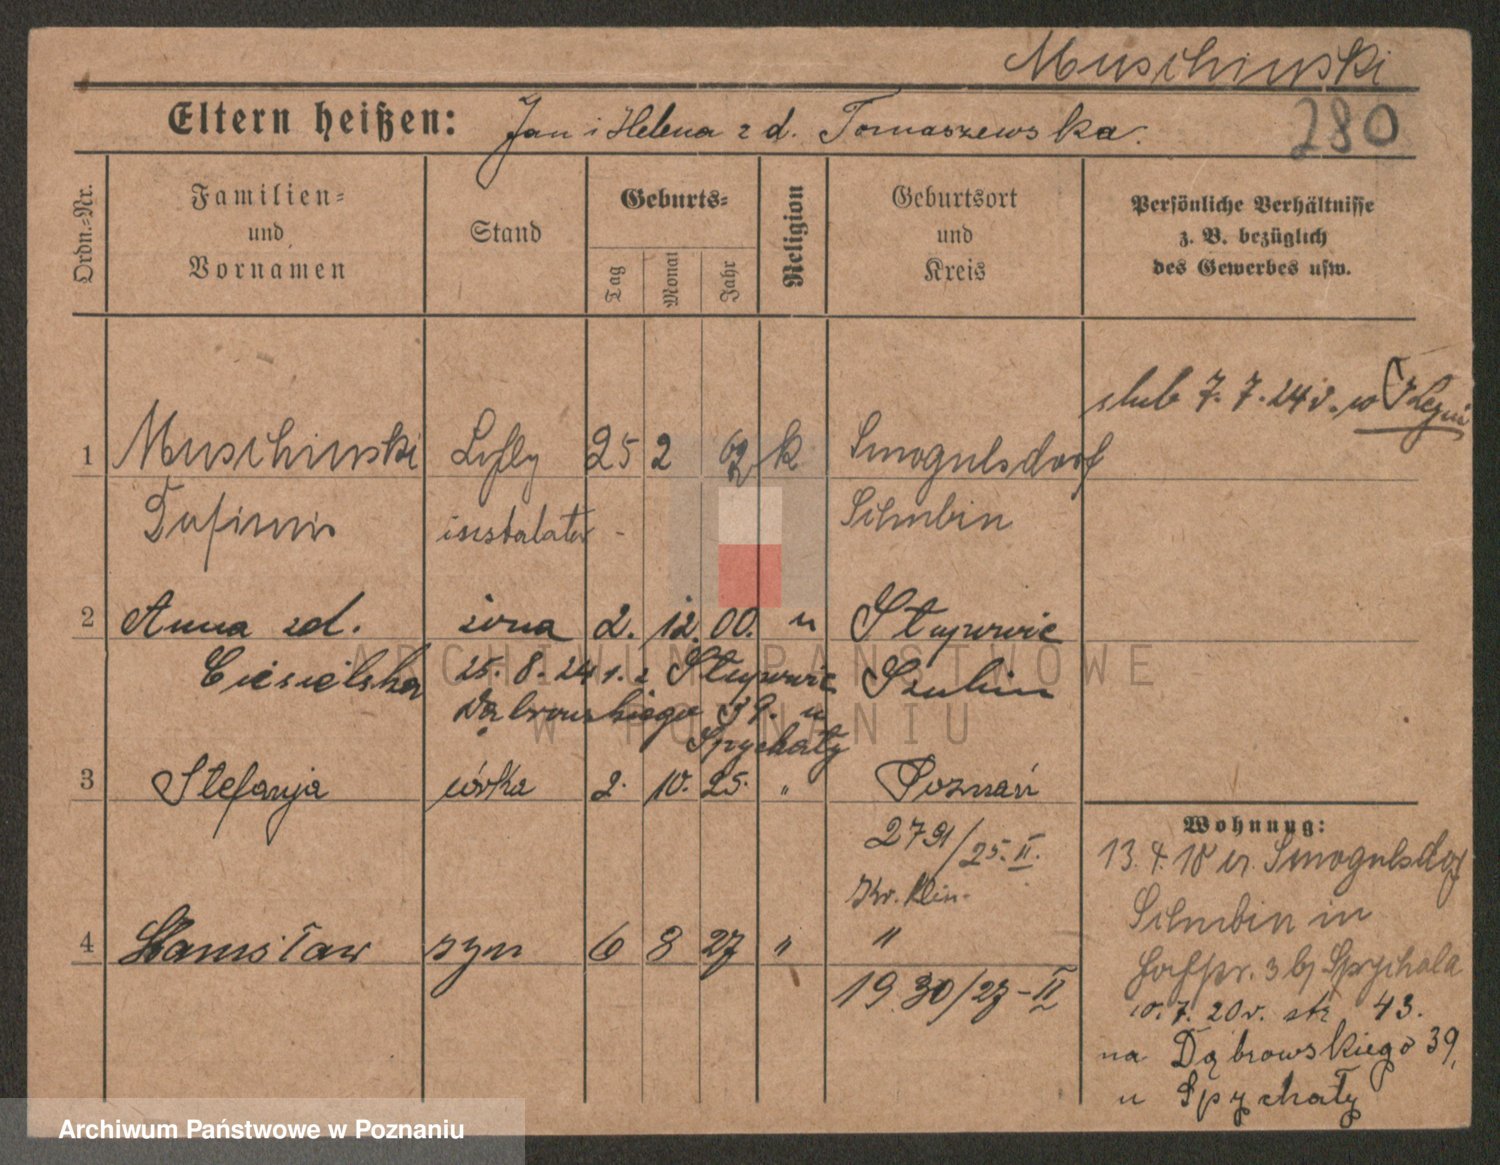 Muschinski
280
Eltern heißen: Jan i Helena z d. Tomaszewska.
Ordn.=Nr.
Familien=
und
Vornamen
Stand
Geburts=
Tag
Monat
Jahr
Religion
Geburtsort
und
Kreis
Persönliche Verhältnisse
z. B. bezüglich
des Gewerbes usw.
ślub 7. 7. 24 r. w
1 Muschinski 25 2 k Smogulsdorf
instalator - Schubin
2 Anna zd. żona 2. 12. 00. " Słupowie
Ciesielska 25. 8. 24 Słupowie Szubin
Dąbrowskiego 39. u
Spychały
3 Stefanja córka 2. 10. 25. " Poznań
2791/25. II.
4 Stanisław syn 6 8 27 " "
1930/27-II
Wohnung:
13. 4. 10 Smogulsdorf
Schubin in
3 b/ Spychala
10. 7. 20 r. str 43.
na Dąbrowskiego 39,
u Spychały
ARCHIWUM PAŃSTWOWE
W POZNANIU
Archiwum Państwowe w Poznaniu